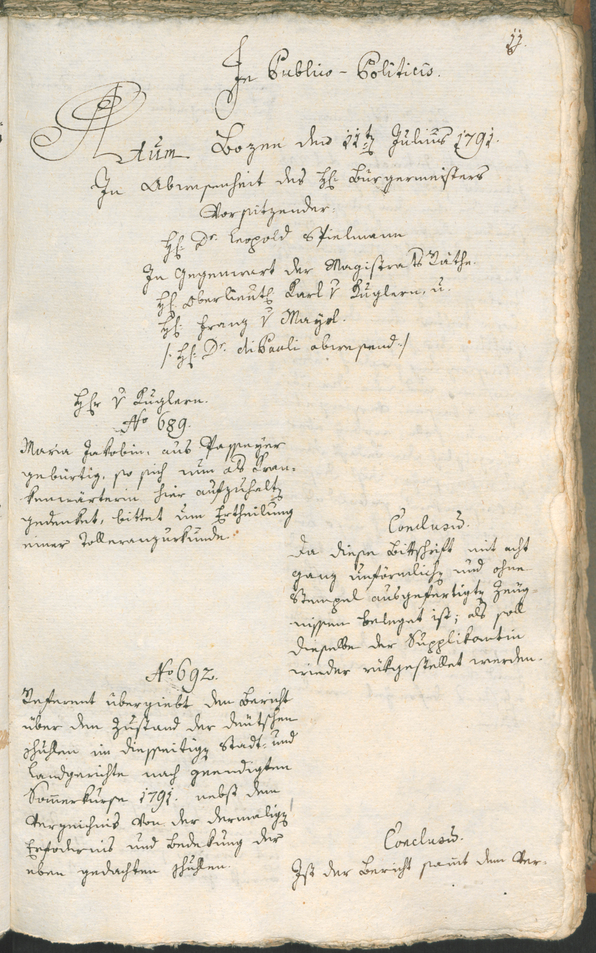 11.
In Publico-Politicis.
Actum Bozen den 11tn Julius 1791.
In Abwesenheit des H: Bürgermeisters
Vorsitzender.
H: Dr. Leopold Spielmann
In Gegenwart der Magistrats Räthe.
H: Oberlieut: Karl v Kuglern, u.
H: Franz v Mayrl.
/: H: Dr. diPauli abwesend:/
Hr v Kuglern.
No 689.
Maria Jakobin, aus Passeyer
gebürtig, so sich nun als Kran-
kenwärterin hier aufzuhaltn
gedenket, bittet um Ertheilung
einer Tolleranzurkunde.
Conclusum.
Da diese Bittschrift mit acht
ganz unförmlichn und ohne
Stempel ausgefertigtn Zeug-
nissen beleget ist; als soll
dieselbe der Supplikantin
wieder rükgestellet werden.
No 692.
Referent übergiebt den Bericht
über den Zustand der deutschen
Schullen im diesseitign Stadt- und
Landgerichte nach geendigten
Sommerkurse 1791. nebst dem
Verzeichnis von der dermalign
Erfodernis und Bedekung der
eben gedachten Schullen.
Conclusum.
Ist der Bericht samt dem Ver-